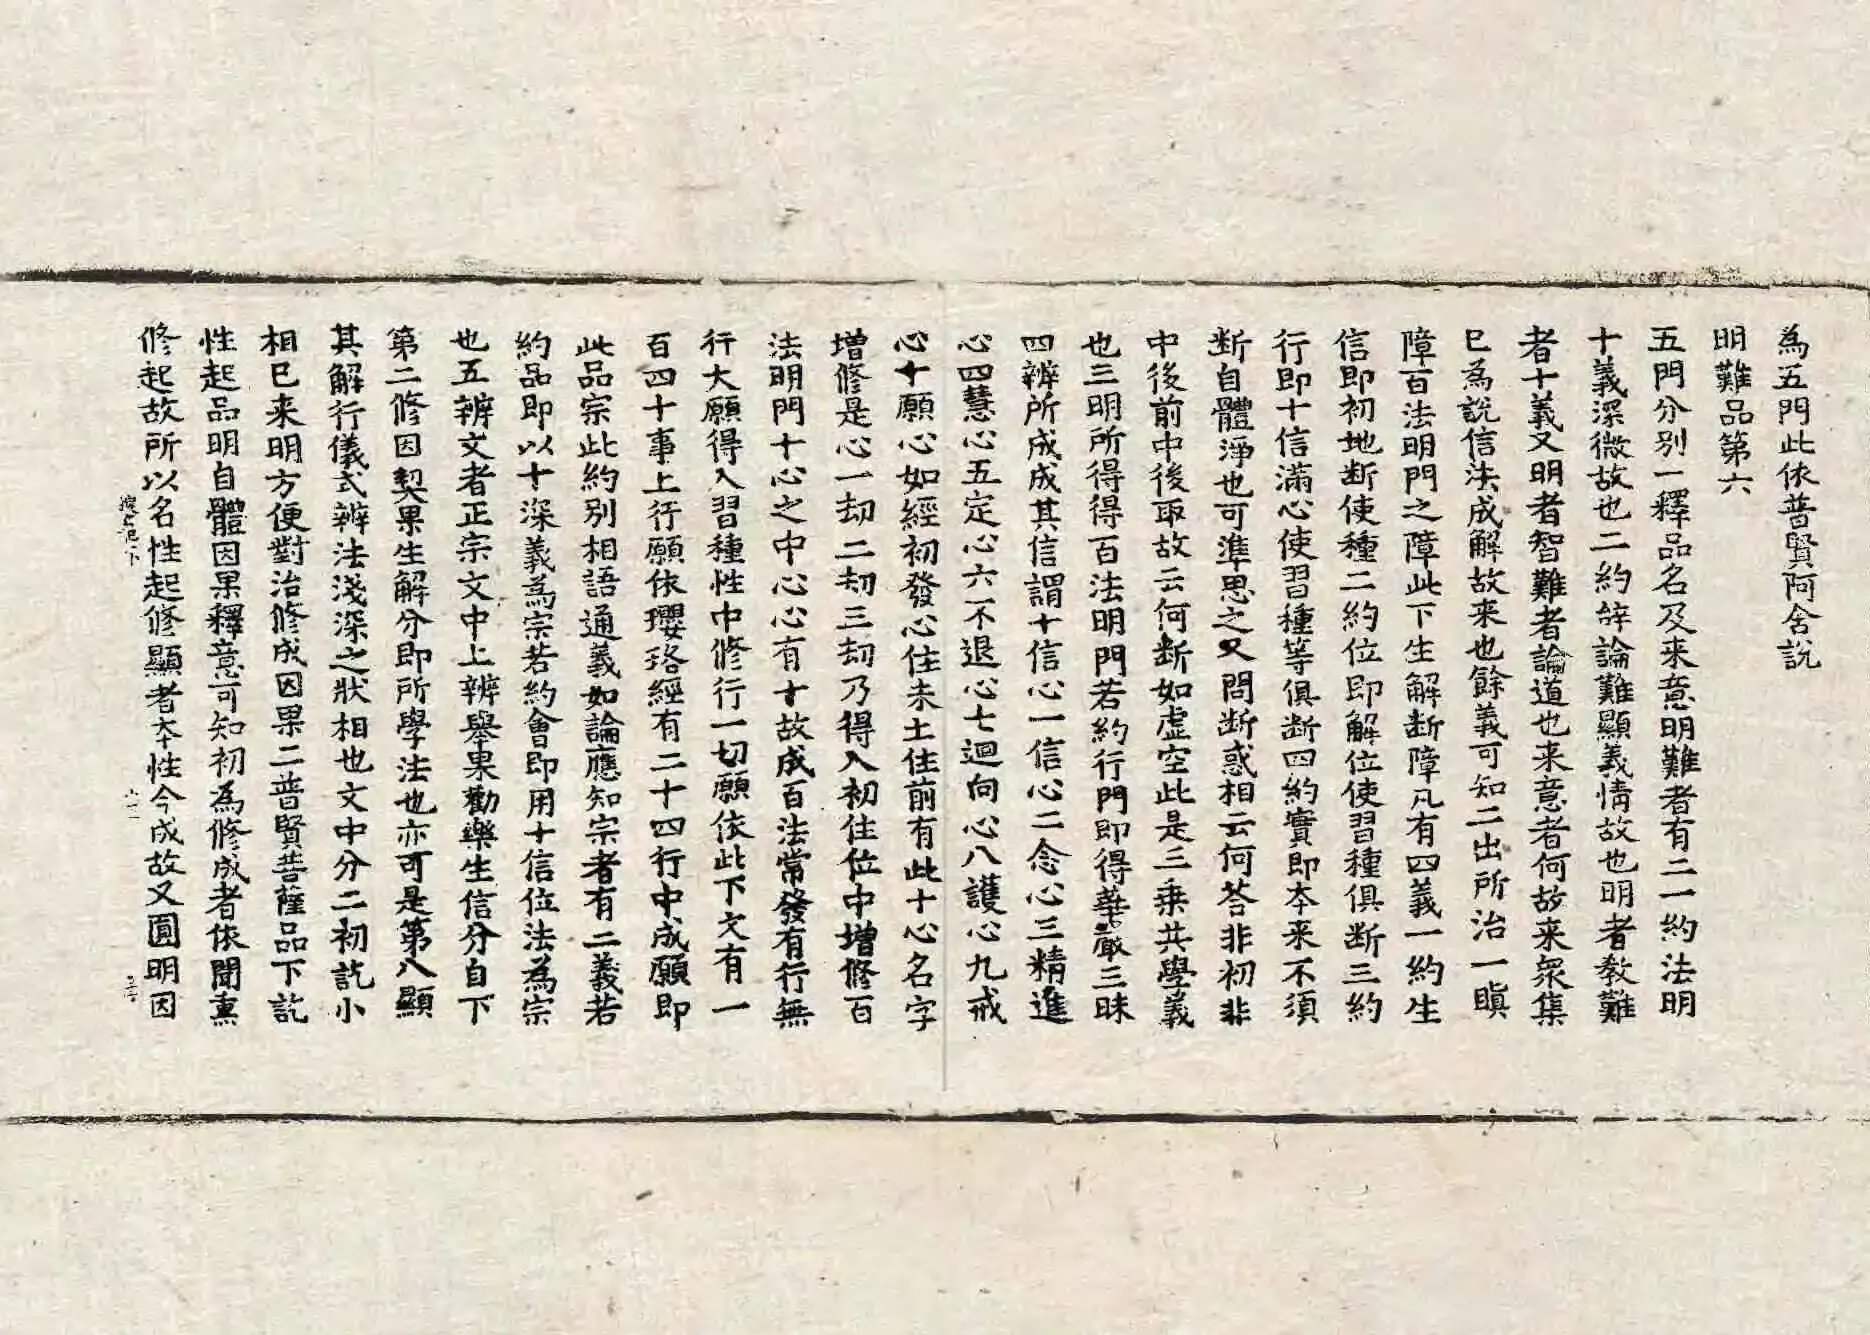 為五門此依普賢阿含說
明難品第六
五門分別一釋品名及来意明難者有二一約法明
十義深微故也二約辞論難顯義情故也明者教難
者十義又明者智難者論道也来意者何故来衆集
已為說信法成解故来也餘義可知二出所治一瞋
障百法明門之障此下生解断障凡有四義一約生
信即初地断使種二約位即解位使習種俱断三約
行即十信滿心使習種等俱断四約實即本来不須
断自體淨也可準思之又問断惑相云何荅非初非
中後前中後取故云何断如虛空此是三乗共學義
也三明所得得得百法明門若約行門即得華嚴三昧
四辨所成成其信謂十信心一信心二念心三精進
心四慧心五定心六不退心七迴向心八護心九戒
心十願心如經初發心住未上住前有此十心名字
增修是心一劫二劫三劫乃得入初住位中增修百
法明門十心之中心心有十故成百法常發有行無
行大願得入習種性中修行一切願依此下文有一
百四十事上行願依瓔珞經有二十四行中成願即
此品宗此約別相語通義如論應知宗者有二義若
約品即以十深義為宗若約會即用十信位法為宗
也五辨文者正宗文中上辨舉果勸樂生信分自下
第二修因契果生解分即所學法也亦可是第八顯
其解行儀式辨法淺深之狀相也文中分二初訖小
相已来明方便對治修成因果二普賢菩薩品下訖
性起品明自體因果釋意可知初為修成者依聞熏
修起故所以名性起修顯者本性今成故又圓明因
搜玄記一下